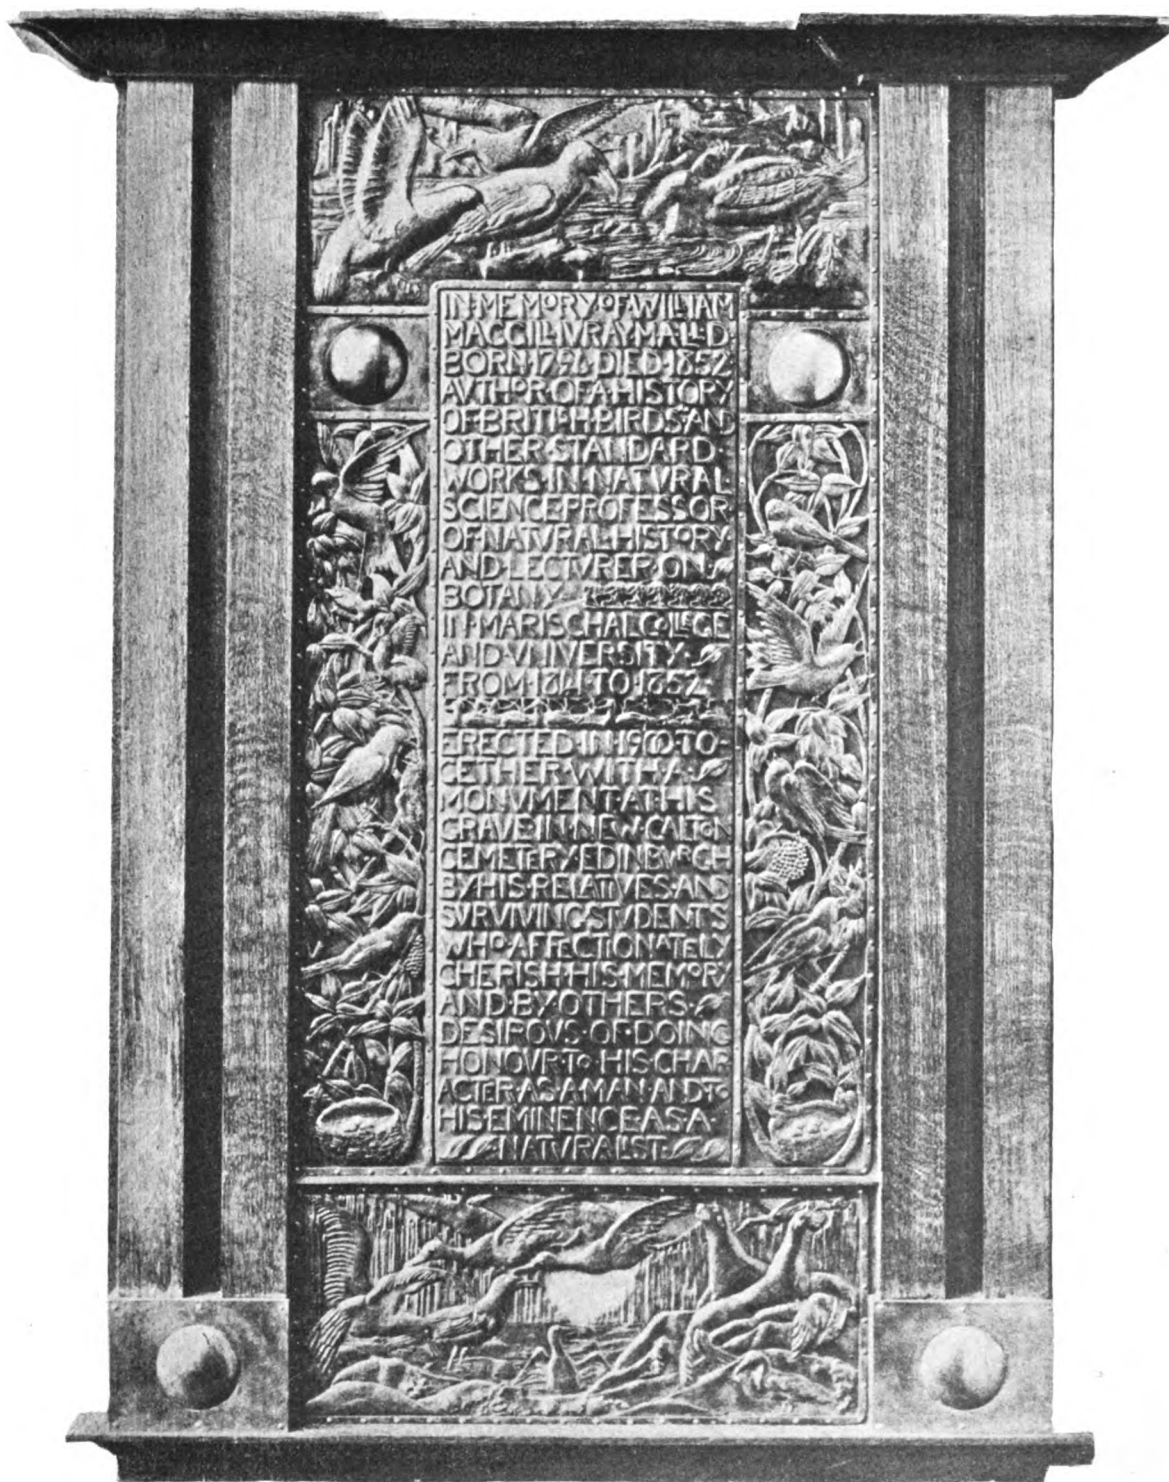 IN·MEMORY·OF·WILLIAM
MACGILLIVRAY·M·A·LL·D·
BORN·1796·DIED·1852·
AVTHOR·OF·A·HISTORY
OF·BRITISH·BIRDS·AND
OTHER·STANDARD·
WORKS·IN·NATVRAL·
SCIENCE·PROFESSOR·
OF·NATVRAL·HISTORY
AND·LECTVRER·ON
BOTANY
IN·MARISCHAL·COLLEGE
AND·VNIVERSITY·
FROM·1841·TO·1852·
ERECTED·IN·1900·TO-
GETHER·WITH·A·
MONVMENT·AT·HIS
GRAVE·IN·NEW·CALTON
CEMETERY·EDINBVRGH
BY·HIS·RELATIVES·AND
SVRVIVING·STVDENTS
WHO·AFFECTIONATELY
CHERISH·HIS·MEMORY
AND·BY·OTHERS·
DESIROVS·OF·DOING
HONOVR·TO·HIS·CHAR
ACTER·AS·A·MAN·AND·TO
HIS·EMINENCE·AS·A·
NATVRALIST·